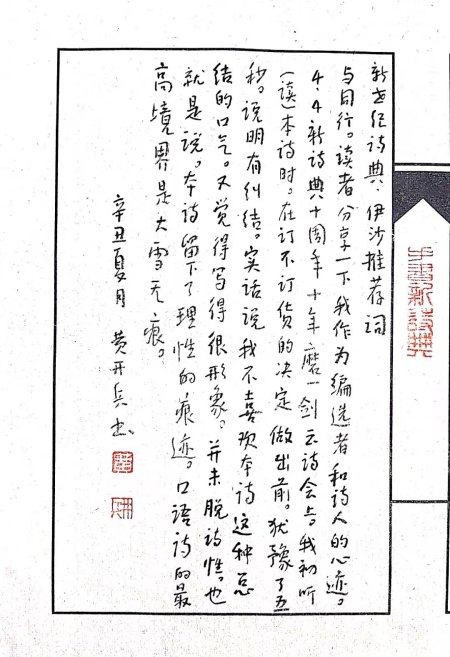 新世纪诗典，伊沙推荐词
与同行。读者分享一下我作为编选者和诗人的心迹。
4.4新诗典十周年十年磨一剑云诗会上。我初听
（读）本诗时。在订不订货的决定做出前。犹豫了五
秒。说明有纠结。实话说我不喜欢本诗这种总
结的口气。又觉得写得很形象。并未脱诗性。也
就是说。本诗留下了理性的痕迹。口语诗的最
高境界是大雪无痕。
辛丑夏月 黄开兵书
手书新诗典